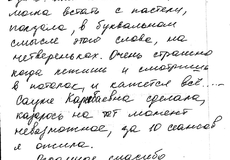 могла встать с постели,
ползала, в буквальном
смысле этого слова, на
четвереньках. Очень страшно
когда лежишь и смотришь
в потолок, и кажется всё....
Сауле сделала,
казалось на тот момент
невозможное, за 10 сеансов
я ожила.
спасибо